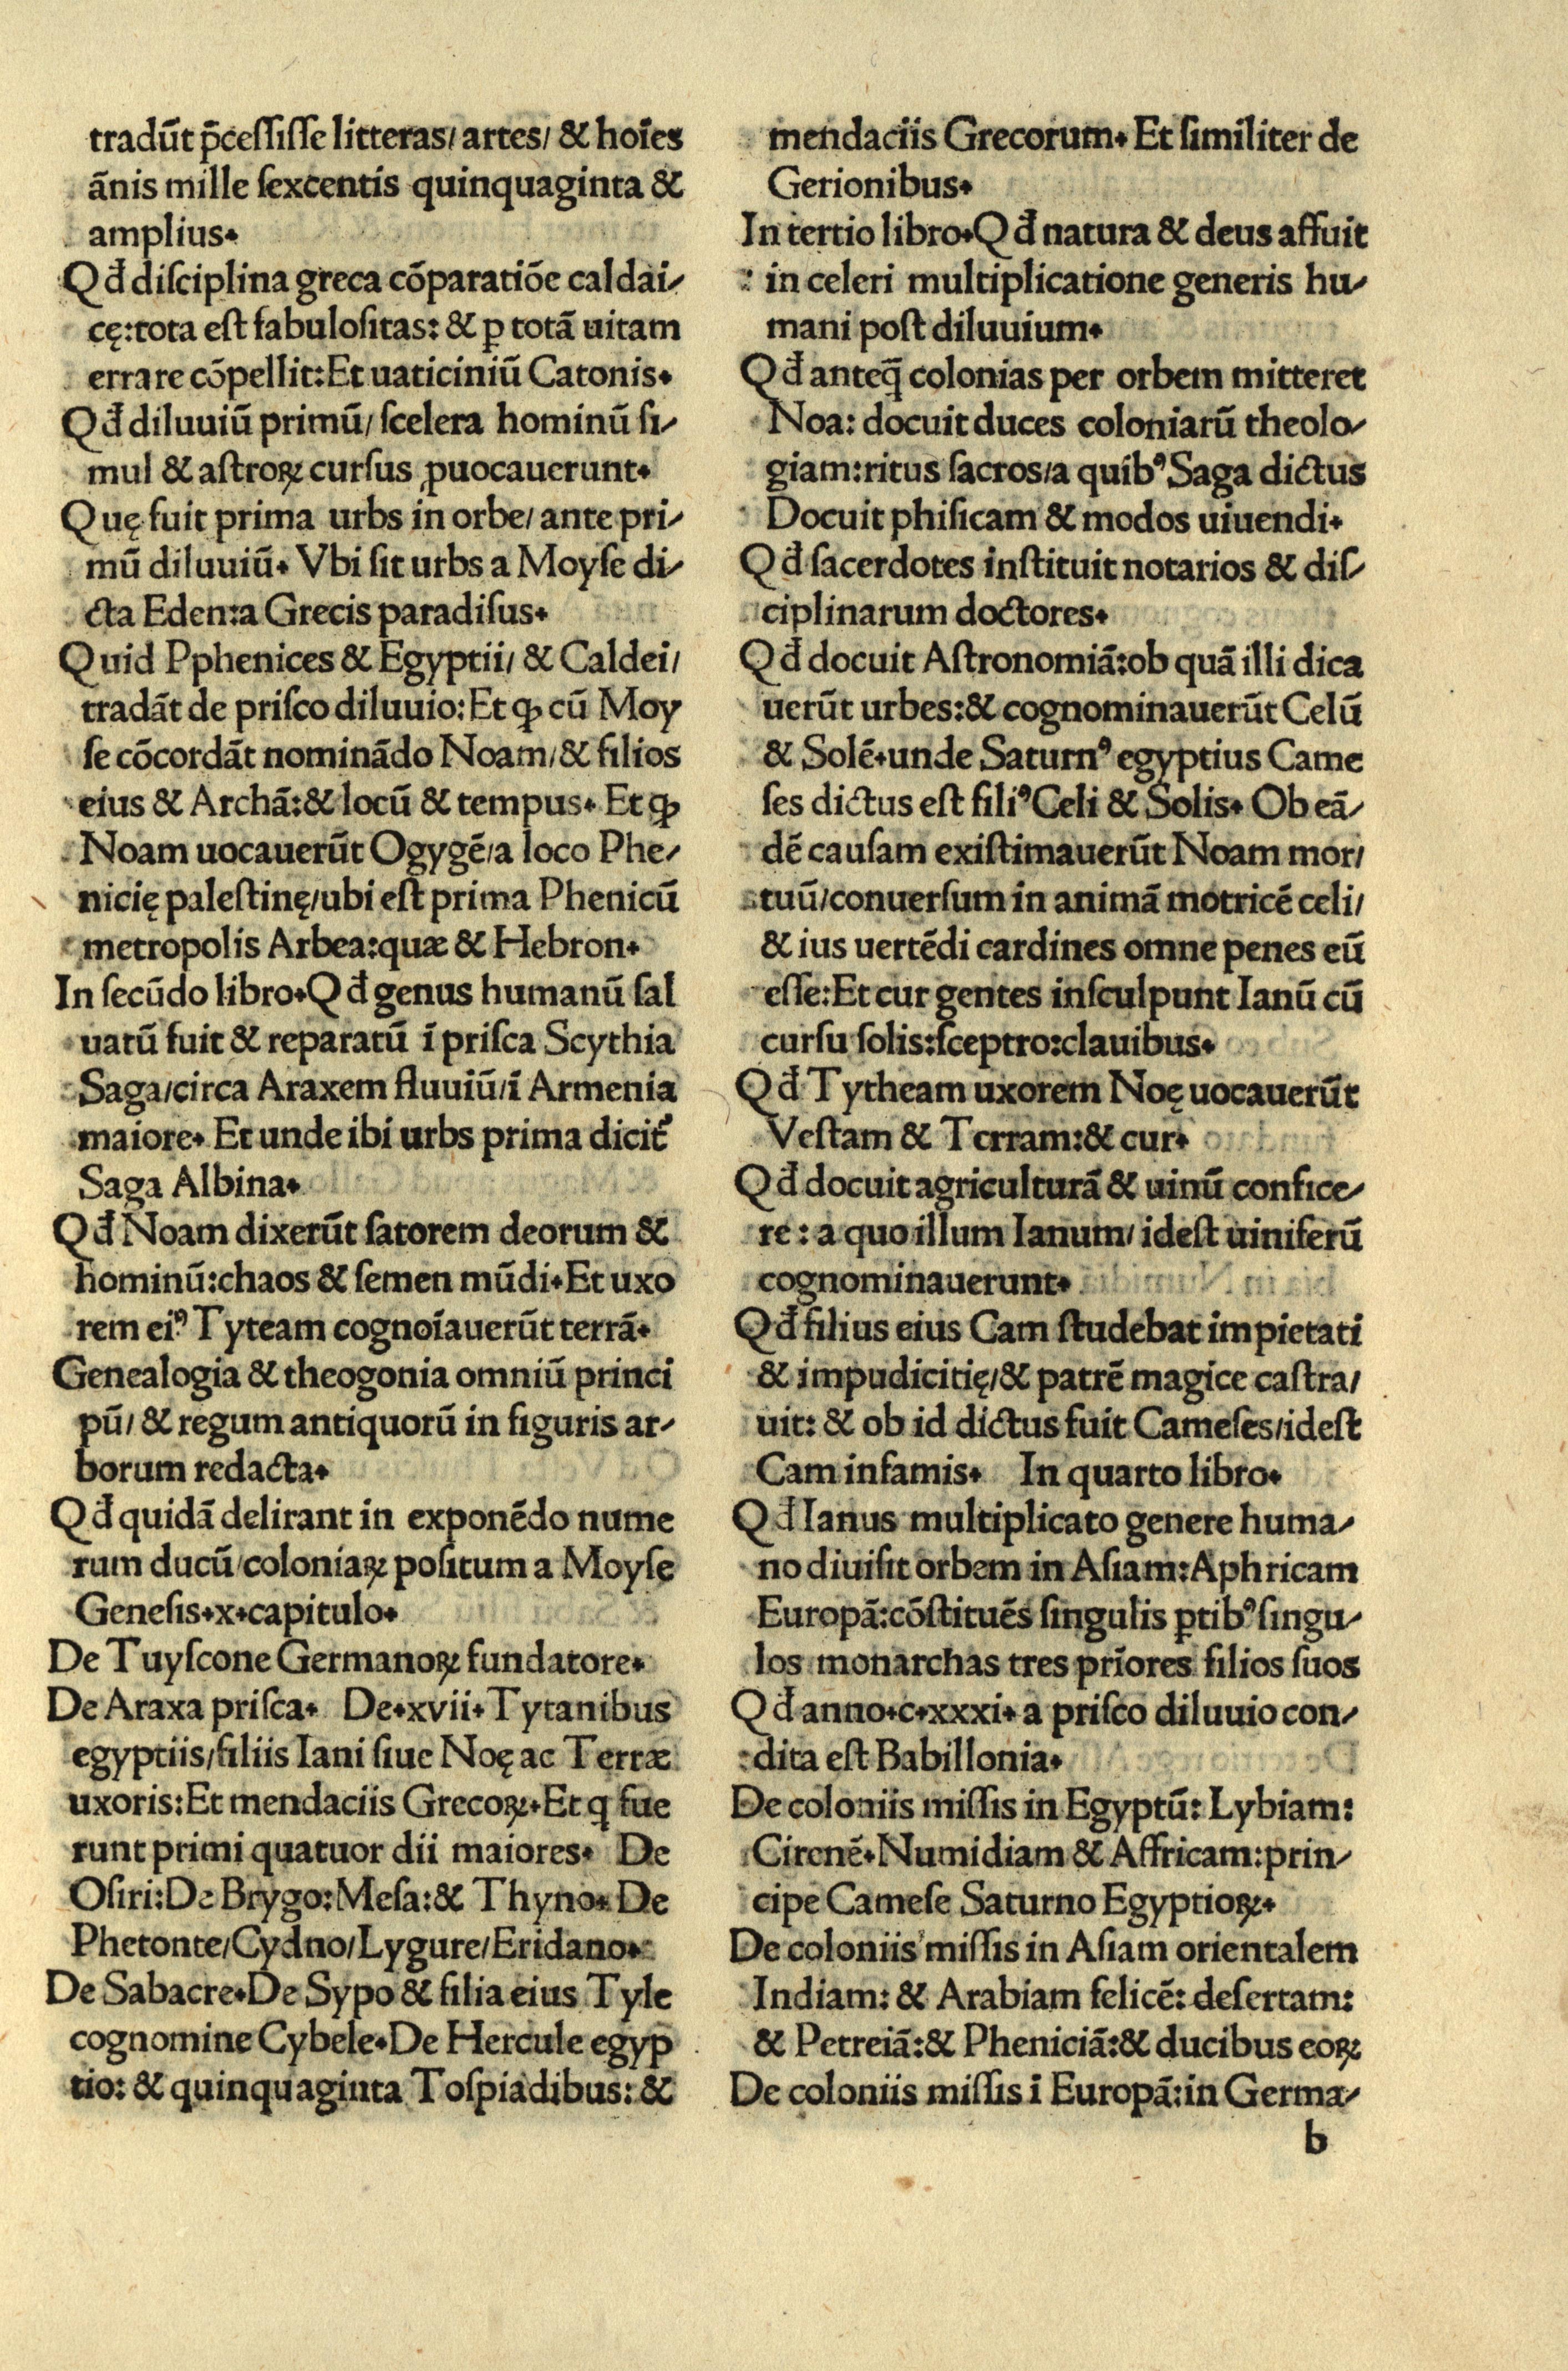 tradūt p̄cessisse litteras/ artes/ & hoīes
ānis mille sexcentis quinquaginta &
amplius.
Qđ disciplina greca cōparatiōe caldai-
cę:tota est fabulositas: & ꝑ totā uitam
errare cōpellit:Et uaticiniū Catonis.
Qđ diluuiū primū/ scelera hominū si-
mul & astroꝝ cursus ꝓuocauerunt.
Quę fuit prima urbs in orbe/ ante pri-
mū diluuiū. Vbi sit urbs a Moyse di-
cta Eden:a Grecis paradisus.
Quid Pphenices & Egyptii/ & Caldei/
tradāt de prisco diluuio:Et ꝙ cū Moy
se cōcordāt nominādo Noam/& filios
eius & Archā:& locū & tempus. Et ꝙ
Noam uocauerūt Ogygē/a loco Phe-
nicię palestinę/ubi est prima Phenicū
metropolis Arbea:quæ & Hebron.
In secūdo libro.Qđ genus humanū sal
uatū fuit & reparatū ī prisca Scythia
Saga/circa Araxem fluuiū/ī Armenia
maiore. Et unde ibi urbs prima dicit᷑
Saga Albina.
Qđ Noam dixerūt satorem deorum &
hominū:chaos & semen mūdi.Et uxo
rem eiꝰ Tyteam cognoīauerūt terrā.
Genealogia & theogonia omniū princi
pū/ & regum antiquorū in figuris ar-
borum redacta.
Qđ quidā delirant in exponēdo nume
rum ducū/coloniaꝝ positum a Moyse
Genesis.x.capitulo.
De Tuyscone Germanoꝝ fundatore.
De Araxa prisca. De.xvii.Tytanibus
egyptiis/filiis Iani siue Noę ac Terræ
uxoris:Et mendaciis Grecoꝝ.Et ꝗ fue
runt primi quatuor dii maiores. De
Osiri:De Brygo:Mesa:& Thyno. De
Phetonte/Cydno/Lygure/Eridano.
De Sabacre.De Sypo & filia eius Tyle
cognomine Cybele.De Hercule egyp
tio: & quinquaginta Tospiadibus: &
mendaciis Grecorum. Et similiter de
Gerionibus.
In tertio libro.Qđ natura & deus affuit
in celeri multiplicatione generis hu-
mani post diluuium.
Qđ anteq̄ colonias per orbem mitteret
Noa: docuit duces coloniarū theolo-
giam:ritus sacros/a quibꝰ Saga dictus
Docuit phisicam & modos uiuendi.
Qđ sacerdotes instituit notarios & dis-
ciplinarum doctores.
Qđ docuit Astronomiā:ob quā illi dica
uerūt urbes:& cognominauerūt Celū
& Solē.unde Saturnꝰ egyptius Came
ses dictus est filiꝰ Celi & Solis. Ob eā-
dē causam existimauerūt Noam mor/
tuū/conuersum in animā motricē celi/
& ius uertēdi cardines omne penes eū
esse:Et cur gentes insculpunt Ianū cū
cursu solis:sceptro:clauibus.
Qđ Tytheam uxorem Noę uocauerūt
Vestam & Terram:& cur.
Qđ docuit agriculturā & uinū confice-
re : a quo illum Ianum/ idest uiniferū
cognominauerunt.
Qđ filius eius Cam studebat impietati
& impudicitię/& patrē magice castra/
uit: & ob id dictus fuit Cameses/idest
Cam infamis. In quarto libro.
Qđ Ianus multiplicato genere huma-
no diuisit orbem in Asiam:Aphricam
Europā:cōstituēs singulis ꝑtibꝰ singu-
los monarchas tres prīores filios suos
Qđ anno.c.xxxi. a prisco diluuio con-
dita est Babillonia.
De coloniis missis in Egyptū: Lybiam:
Cirenē.Numidiam & Affricam:prin-
cipe Camese Saturno Egyptioꝝ.
De coloniis missis in Asiam orientalem
Indiam: & Arabiam felicē: desertam:
& Petreiā:& Pheniciā:& ducibus eoꝝ
De coloniis missis ī Europā:in Germa-
b